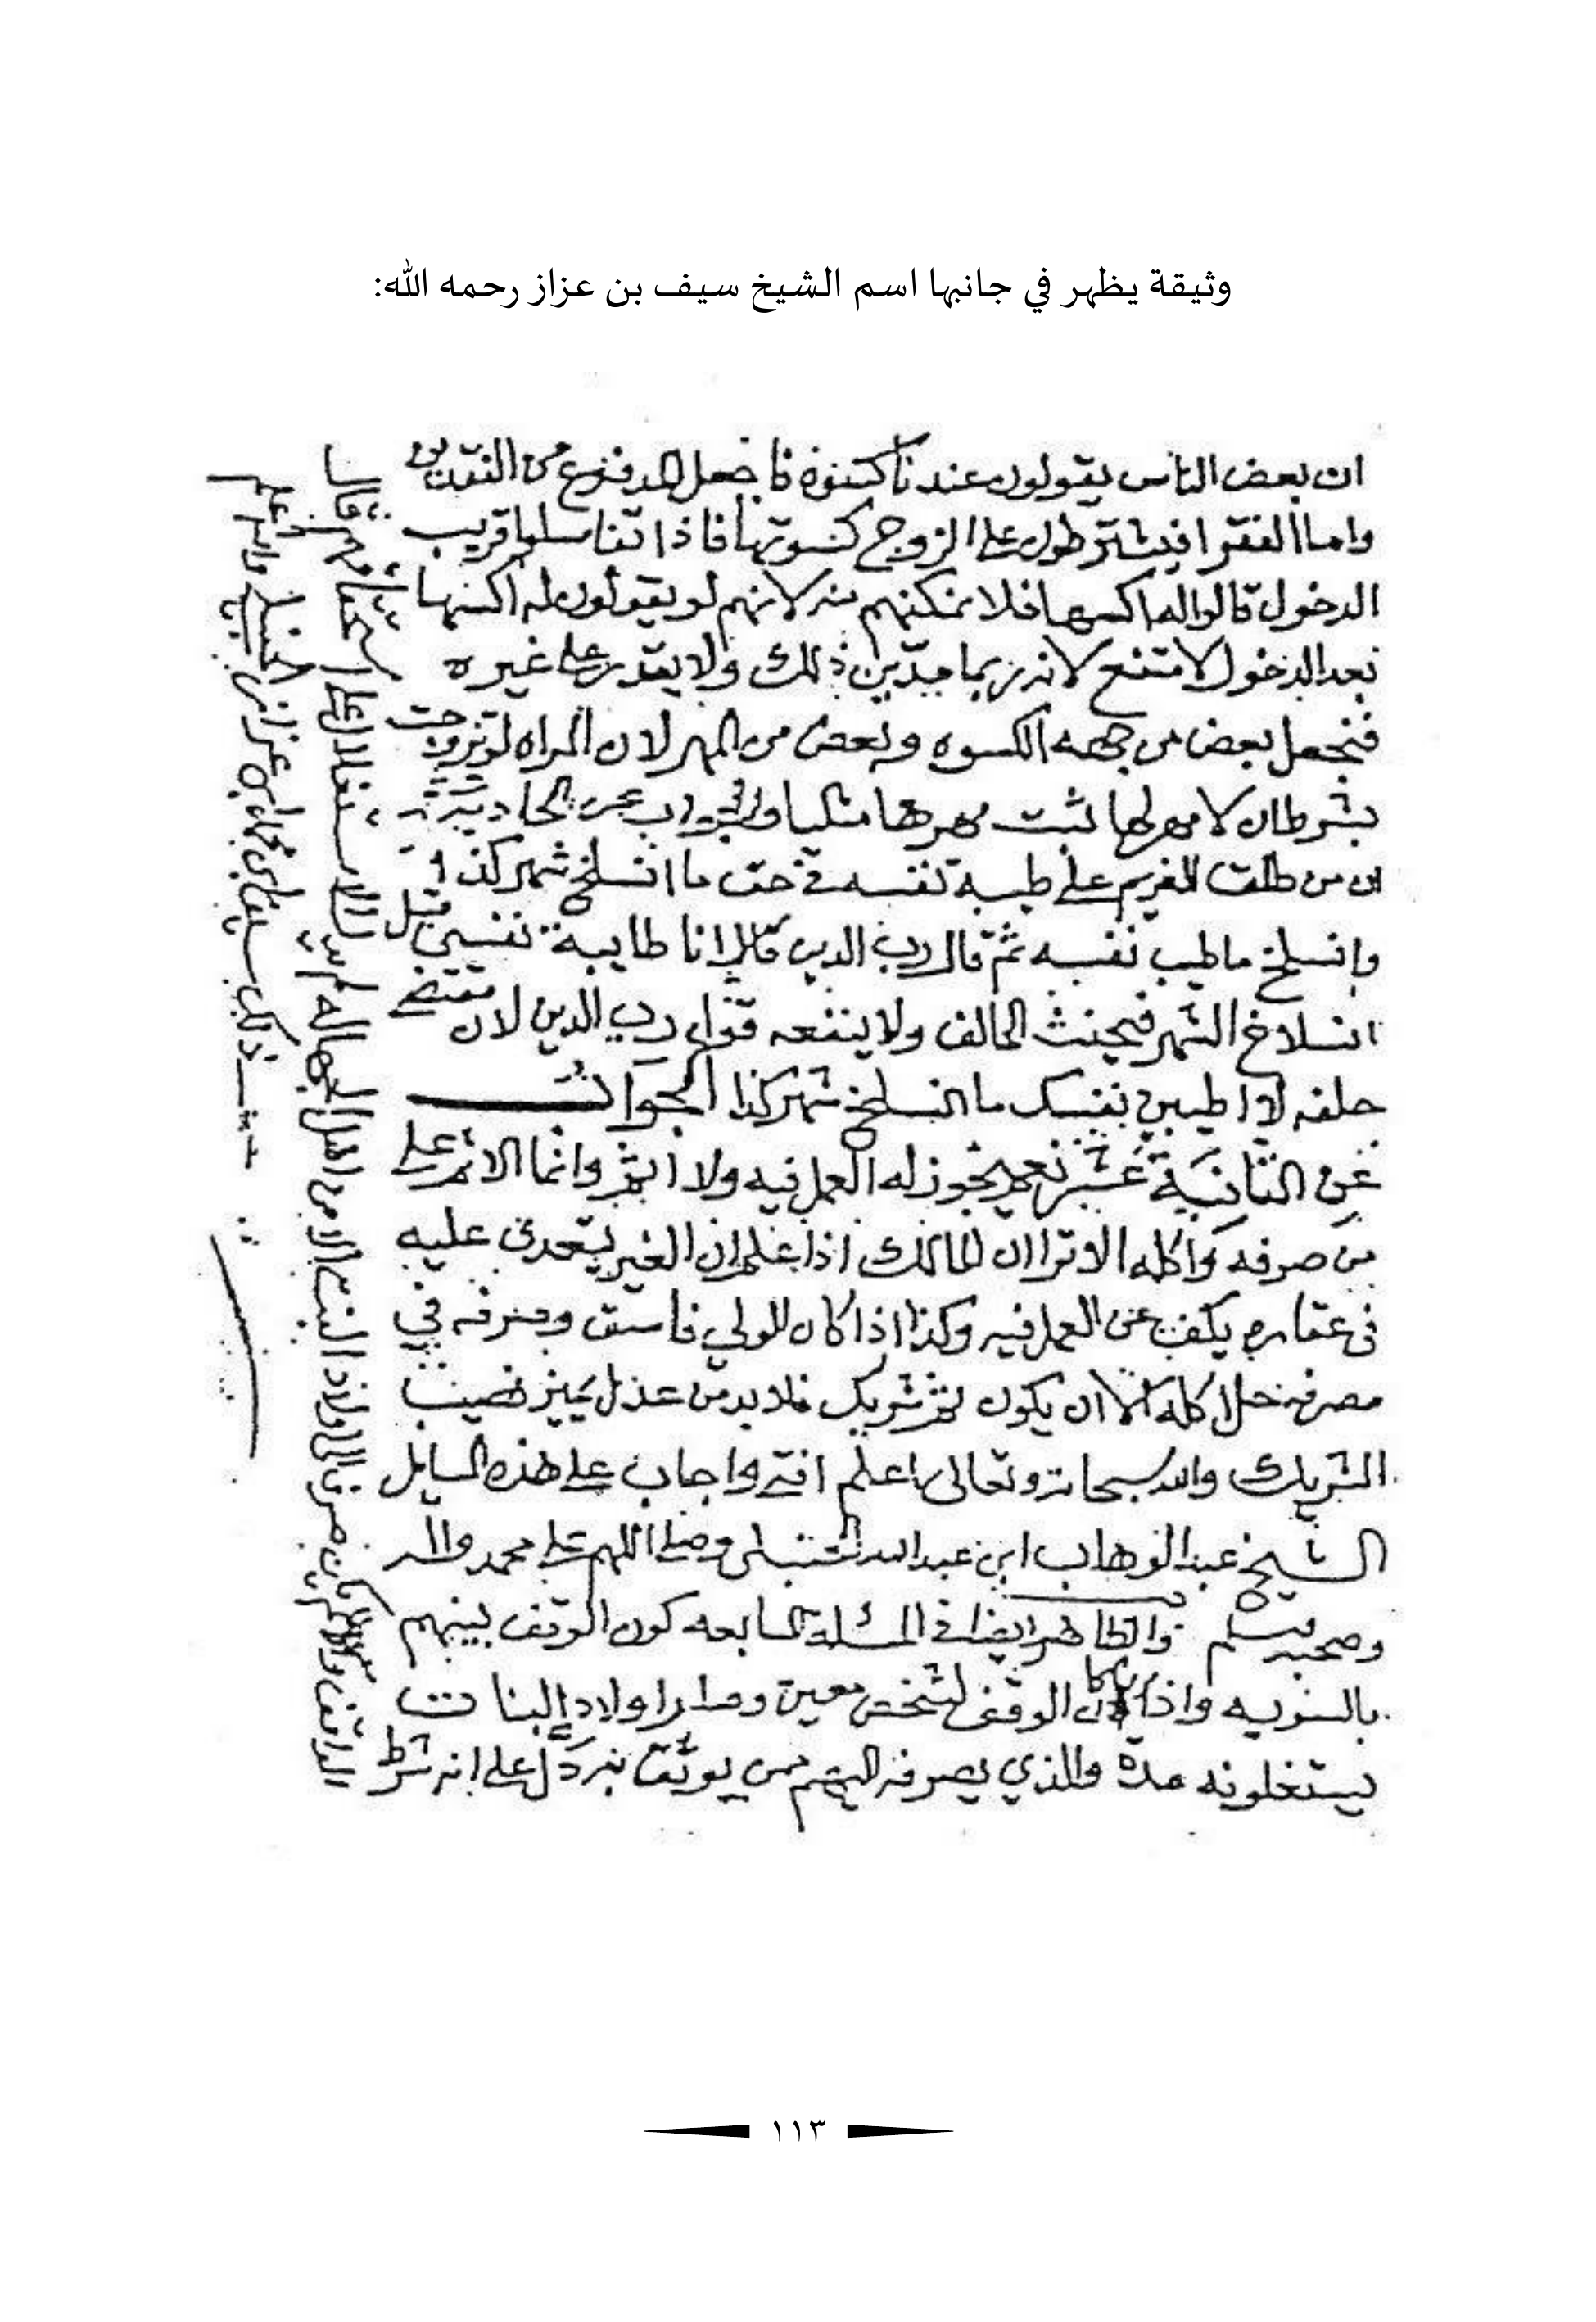 وثيقة يظهر في جانبها اسم الشيخ سيف بن عزاز رحمه الله:
ان بعض الناس يقولون عندنا كسوة من النقدين
واما الفقرا فيشترطون على الزوج كسوتها فاذا قريب
الدخول قالوا له اكسها فلا يمكنهم لانهم لو يقولون له اكسها
بعد الدخول لامتنع لانه ربما ذلك ولا يقدر على غيره
فنجعل بعض من جهه الكسوه وبعض من المهر لان المراه لو تزوجت
بشرطان لا مهر لها ثبت مهر مثلها والجواب عن الحادية
ان من طلب الغريم على طيبة نفسه في حق ما انسلخ شهر كذا
وانسلخ ما طيب نفسه ثم قال رب الدين انا طايبة نفسي قبل
انسلاخ الشهر فيحنث الحالف ولا ينفعه قول رب الدين لان مقتضى
حلفه نفسك ما انسلخ شهر كذا الجواب
عن الثانية عشر نعم يجوز له العمل فيه ولا اثم وانما الاثم على
من صرفه واكله الا ترا ان المالك اذا علم ان الغير يتعدى عليه
في عقاره يكف عن العمل فيه وكذا اذا كان الولي فاسق وصرفه في
مصرفه حل اكله الا ان يكون ثم شريك فلا بد من عدل يميز نصيب
الشريك والله سبحانه وتعالى اعلم افتى واجاب على هذه المسايل
الشيخ عبد الوهاب ابن عبد الله وصلى اللهم على محمد واله
وصحبه وسلم والظاهر ايضا في المسئلة السابعه كون الوقف بينهم
بالسويه واذا كان الوقف لشخص معين وصار اولاد البنات
يستغلونه مدة والذي يصرفه اليهم ممن يوثق به دل على انه شرط
الواقف من صرف الى اولاد البنت الا من اهل الجهالة
قال ذلك سيف بن محمد بن عزاز الحنبلي والله اعلم
١١٣